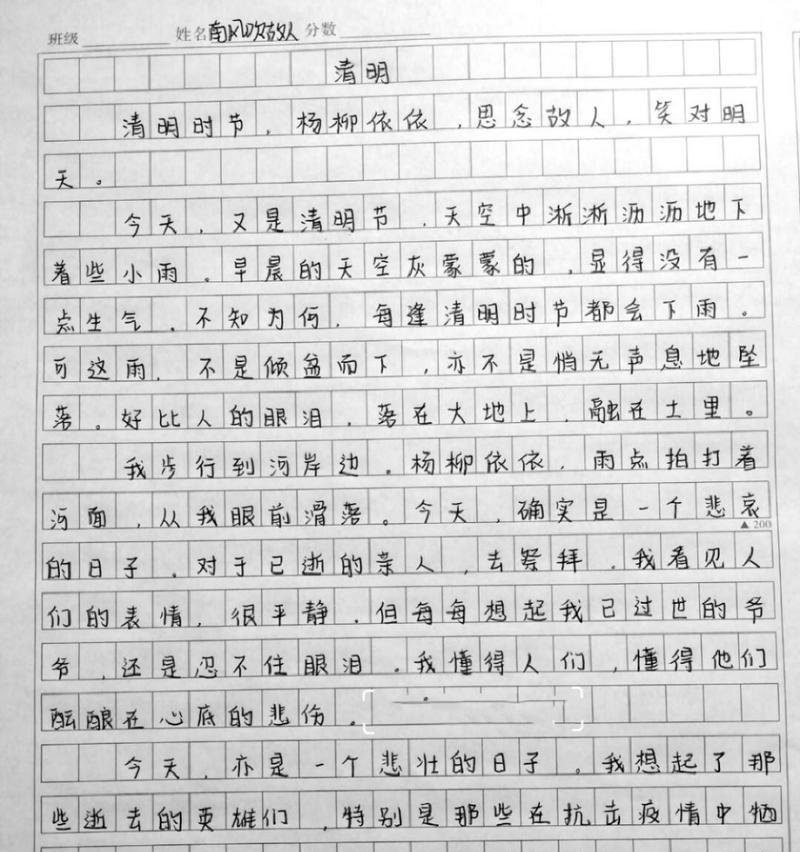 班级 姓名 南风吹故人 分数
清明
清明时节，杨柳依依，思念故人，笑对明
天。
今天，又是清明节，天空中淅淅沥沥地下
着些小雨。早晨的天空灰蒙蒙的，显得没有一
点生气。不知为何，每逢清明时节都会下雨。
可这雨，不是倾盆而下，亦不是悄无声息地坠
落。好比人的眼泪，落在大地上，融在土里。
我步行到河岸边。杨柳依依，雨点拍打着
河面，从我眼前滑落。今天，确实是一个悲哀
▲200
的日子。对于已逝的亲人，去祭拜，我看见人
们的表情，很平静，但每每想起我已过世的爷
爷，还是忍不住眼泪。我懂得人们，懂得他们
酝酿在心底的悲伤。
今天，亦是一个悲壮的日子。我想起了那
些逝去的英雄们，特别是那些在抗击疫情中牺